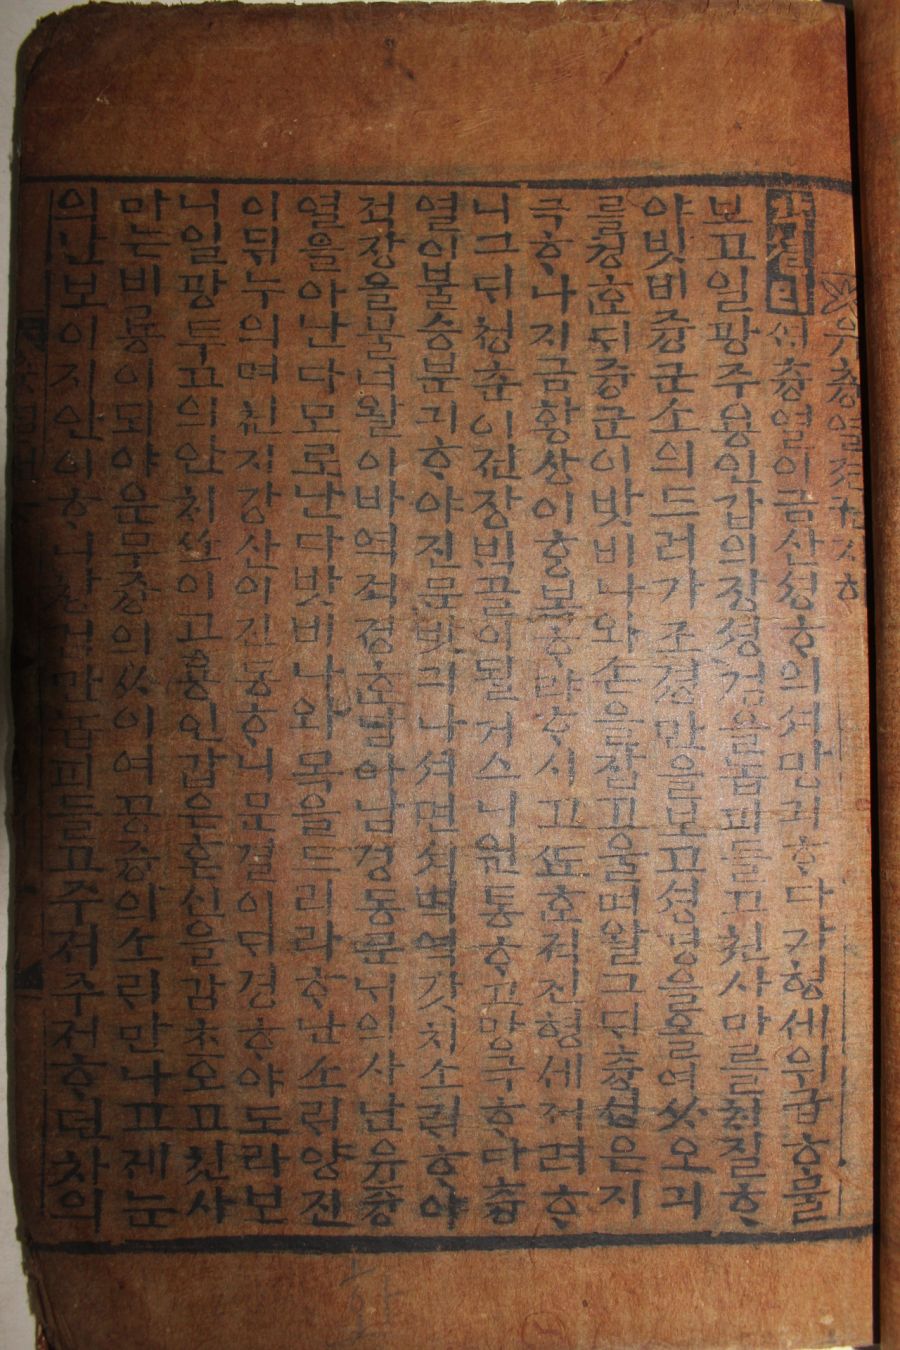 유츙열젼권지ᄒᆞ
츙열이금산셩ᄒᆞ의셔만괴ᄒᆞ다가형셰위급ᄒᆞ물
보고일광주용인갑의장셩검을놉피들고쳔사마를칮질ᄒᆞ
야밧비즁군소의드러가조졍만을보고셩명을올여ᄊᆞ오괴
를쳥ᄒᆞᆫᄃᆡ즁군이밧비나와손을잡고울며왈그ᄃᆡ츙셩은지
극ᄒᆞ나지금황상이ᄒᆞᆼ복ᄒᆞ랴ᄒᆞ시고ᄯᅩᄒᆞᆫ젹진형셰져려ᄒᆞ
니그ᄃᆡ쳥츈이젼장ᄇᆡᆨ골이될거스니원통ᄒᆞ고망극ᄒᆞ다츙
열이불승분괴ᄒᆞ야진문밧긔나셔면셔벽역갓치소ᄅᆡᄒᆞ야
젹장을불너왈이바역젹졍ᄒᆞᆫ담아남경동문ᄂᆡ의사난유츙
열을아난다모로난다밧비나와목을드리라ᄒᆞ난소ᄅᆡ양진
이뒤누의며쳔지강산이진동ᄒᆞ니모결이ᄃᆡ경ᄒᆞ야도라보
니일광두고의안치ᄊᆞ이고용인갑은혼신을감초오고칫사
마는비룡이되야운무즁의ᄊᆞ이여공즁의소ᄅᆡ만나고졔눈
의난보이지안이ᄒᆞ니창검만놉피들고주저주저ᄒᆞ던차의